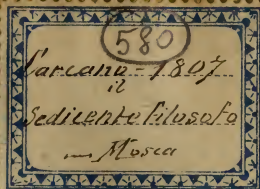 580
Carcano - 1807
il
Sedicente Filosofo
Mosca